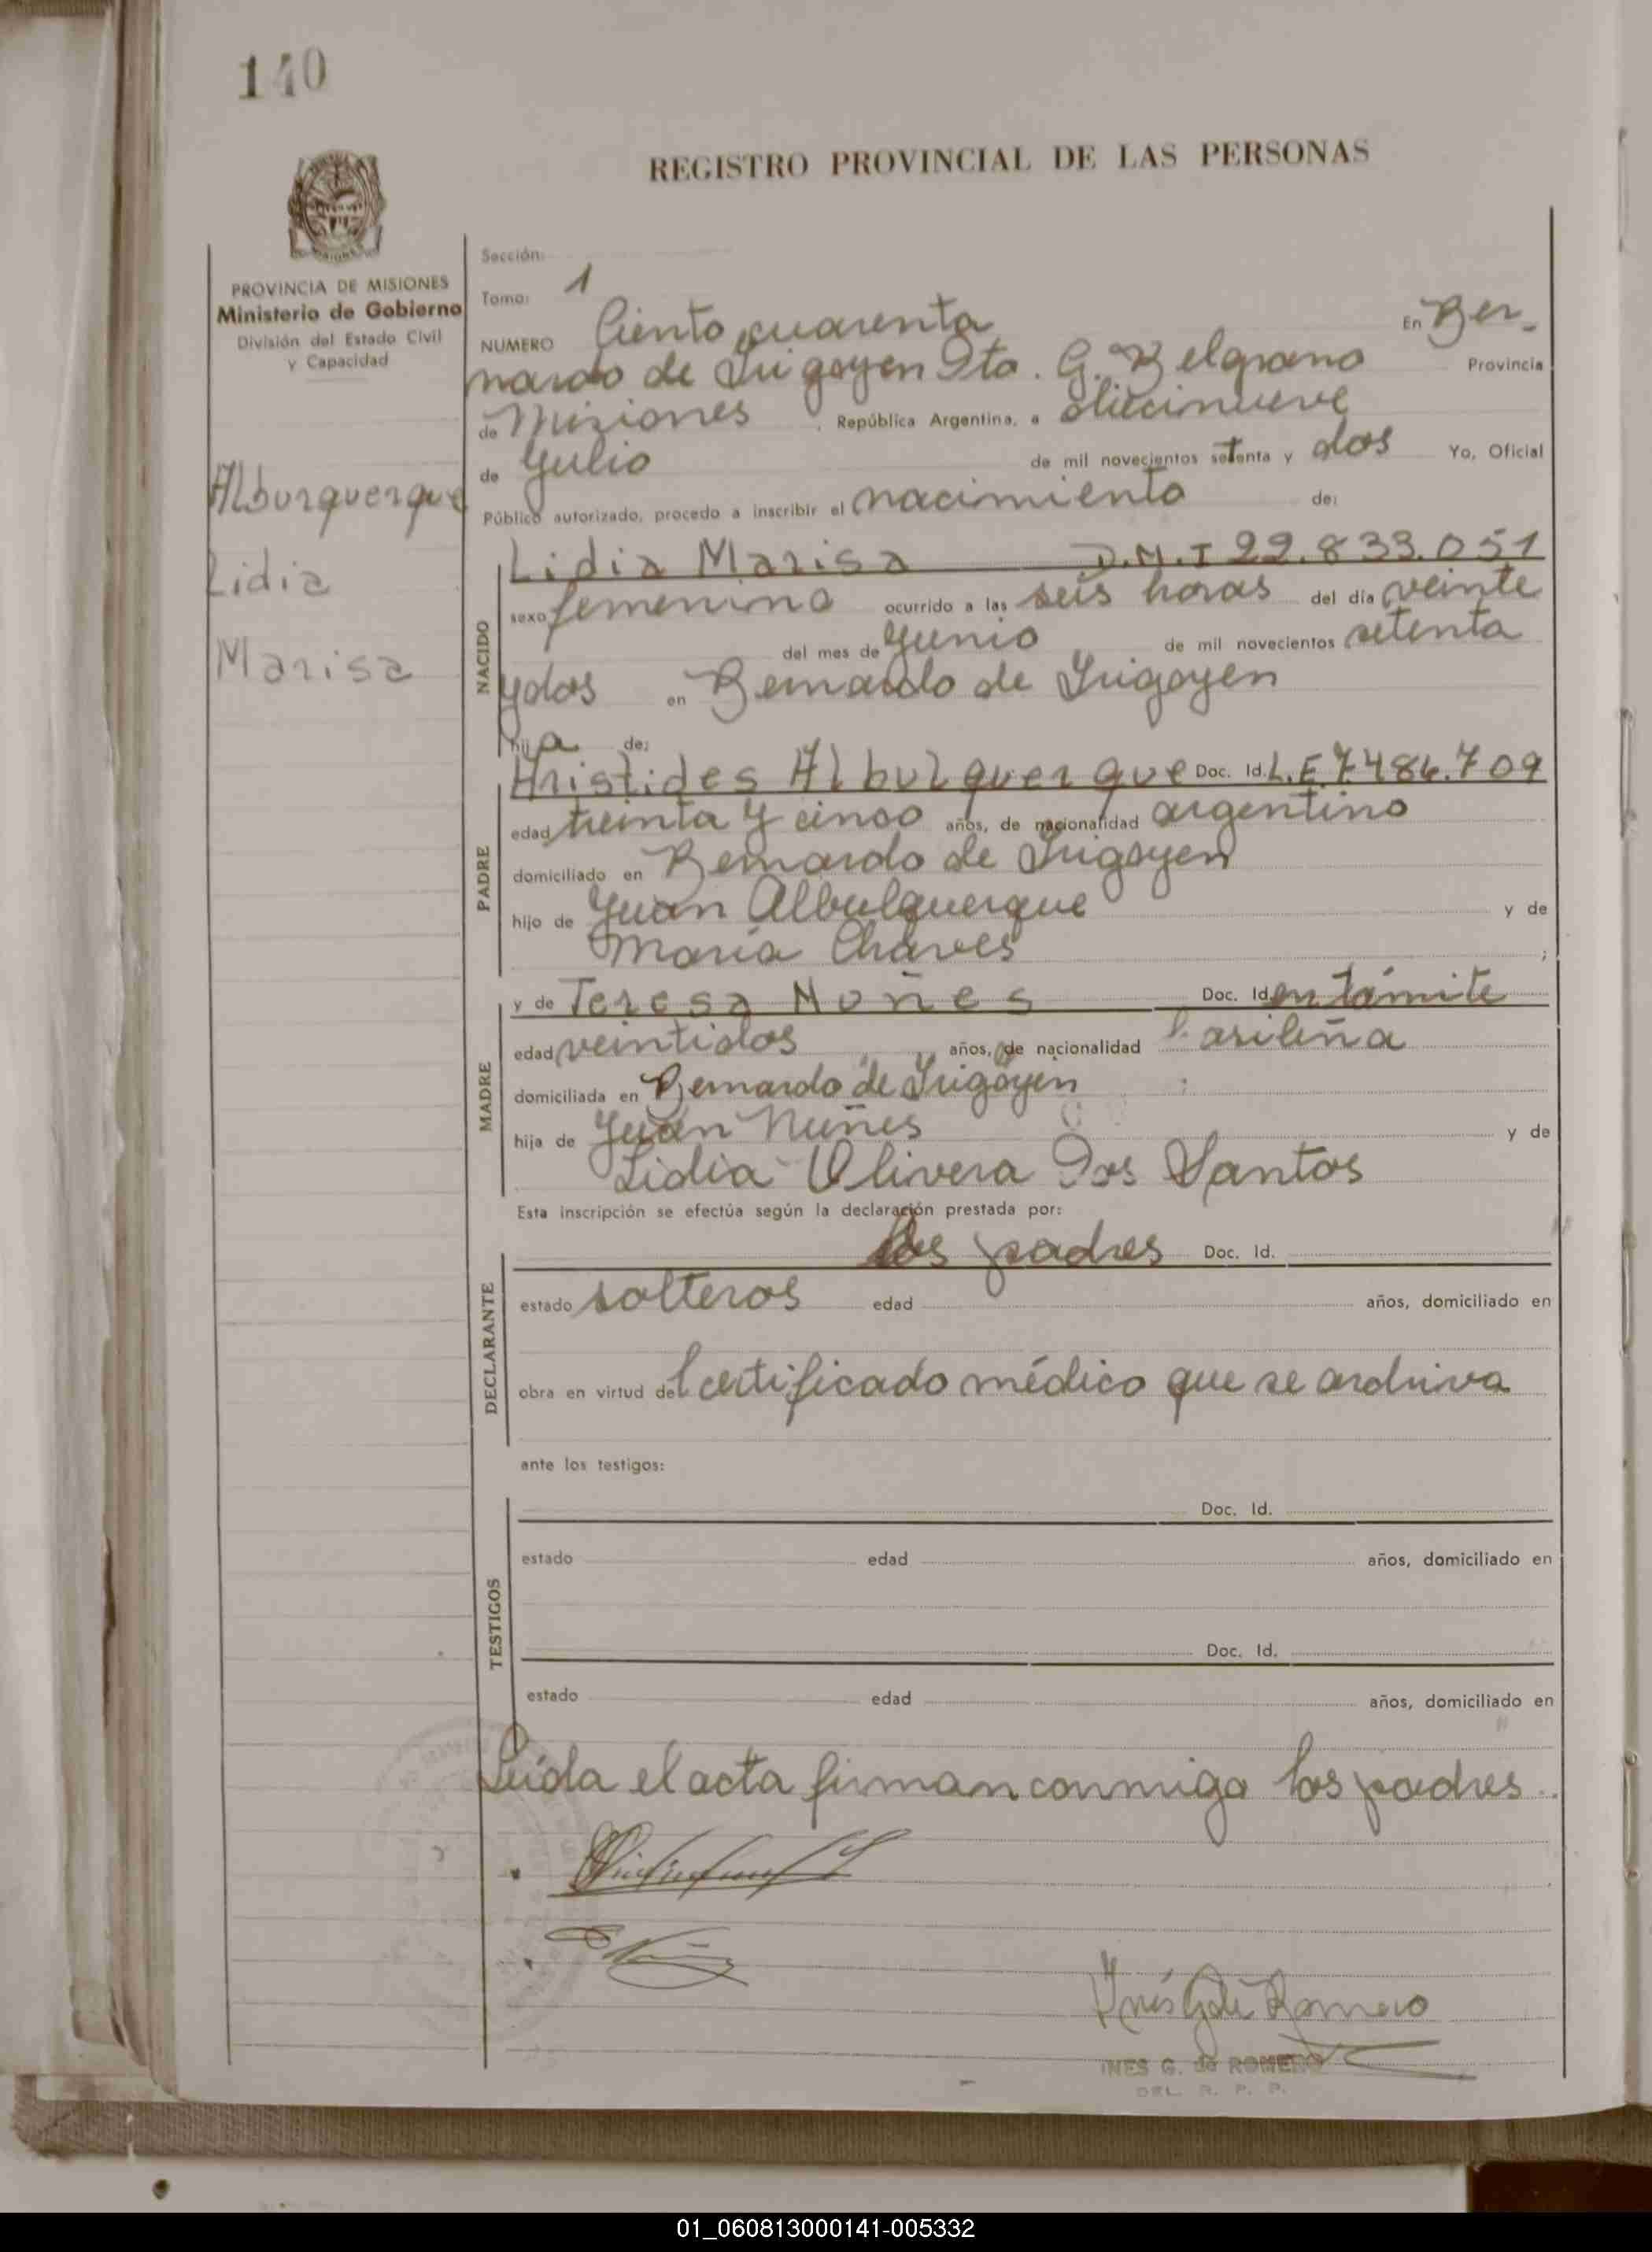 140
REGISTRO PROVINCIAL DE LAS PERSONAS
PROVINCIA DE MISIONES
Ministerio de Gobierno
División del Estado Civil
y Capacidad
Alburquerque
Lidia
Marisa
Sección:
Tomo: 1
NUMERO Ciento cuarenta En Ber-
nardo de Irigoyen Dto. G. Belgrano Provincia
de Misiones, República Argentina, a diecinueve
de Julio de mil novecientos setenta y dos Yo, Oficial
Público autorizado, procedo a inscribir el nacimiento de:
NACIDO
Lidia Marisa D.N.I 22.833.051
sexo femenino ocurrido a las seis horas del día veinte
del mes de Junio de mil novecientos setenta
y dos en Bernardo de Irigoyen
hija de:
PADRE
Aristides Albulquerque Doc. Id. L.E 7.486.709
edad treinta y cinco años, de nacionalidad argentino
domiciliado en Bernardo de Irigoyen
hijo de Juan Albulquerque y de
María Chaves ;
MADRE
y de Teresa Nuñes Doc. Id. en támite
edad veintidos años, de nacionalidad brasileña
domiciliada en Bernardo de Irigoyen
hija de Juan Nuñes y de
Lidia Olivera Dos Santos
Esta inscripción se efectúa según la declaración prestada por:
DECLARANTE
los padres Doc. Id.
estado solteros edad años, domiciliado en
obra en virtud del certificado médico que se archiva
ante los testigos:
TESTIGOS
Doc. Id.
estado edad años, domiciliado en
Doc. Id.
estado edad años, domiciliado en
Leída el acta firman conmigo los padres.
Inés G de Romero
INES G. de ROMERO
DEL. R. P. P.
01_060813000141-005332